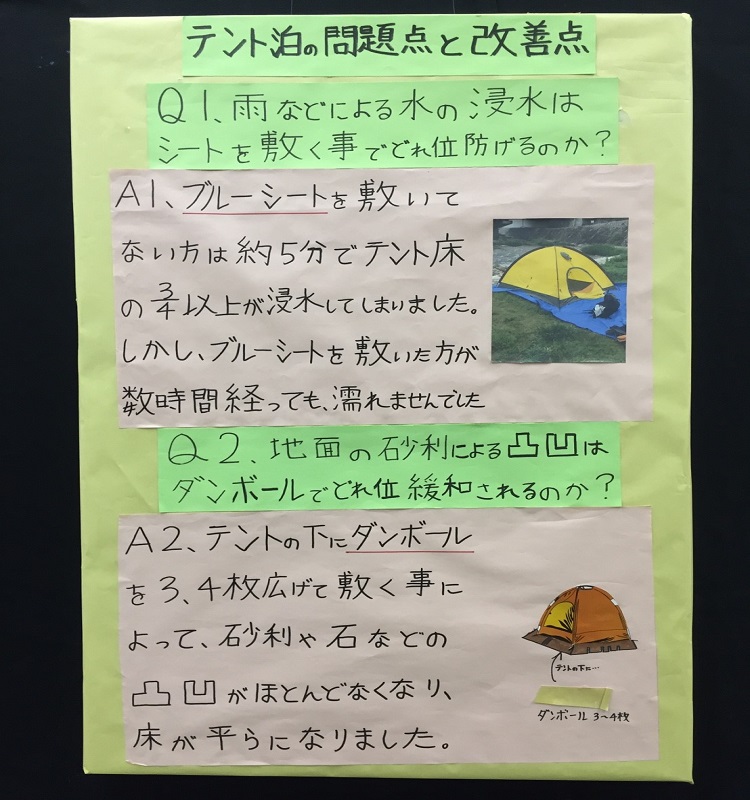 テント泊の問題点と改善点
Q1、雨などによる水の浸水は
シートを敷く事でどれ位防げるのか？
A1、ブルーシートを敷いて
ない方は約5分でテント床
の3/4以上が浸水してしまいました。
しかし、ブルーシートを敷いた方が
数時間経っても、濡れませんでした
Q2、地面の砂利による凸凹は
ダンボールでどれ位緩和されるのか？
A2、テントの下にダンボール
を3、4枚広げて敷く事に
よって、砂利や石などの
凸凹がほとんどなくなり、
床が平らになりました。
テントの下に…
ダンボール3〜4枚